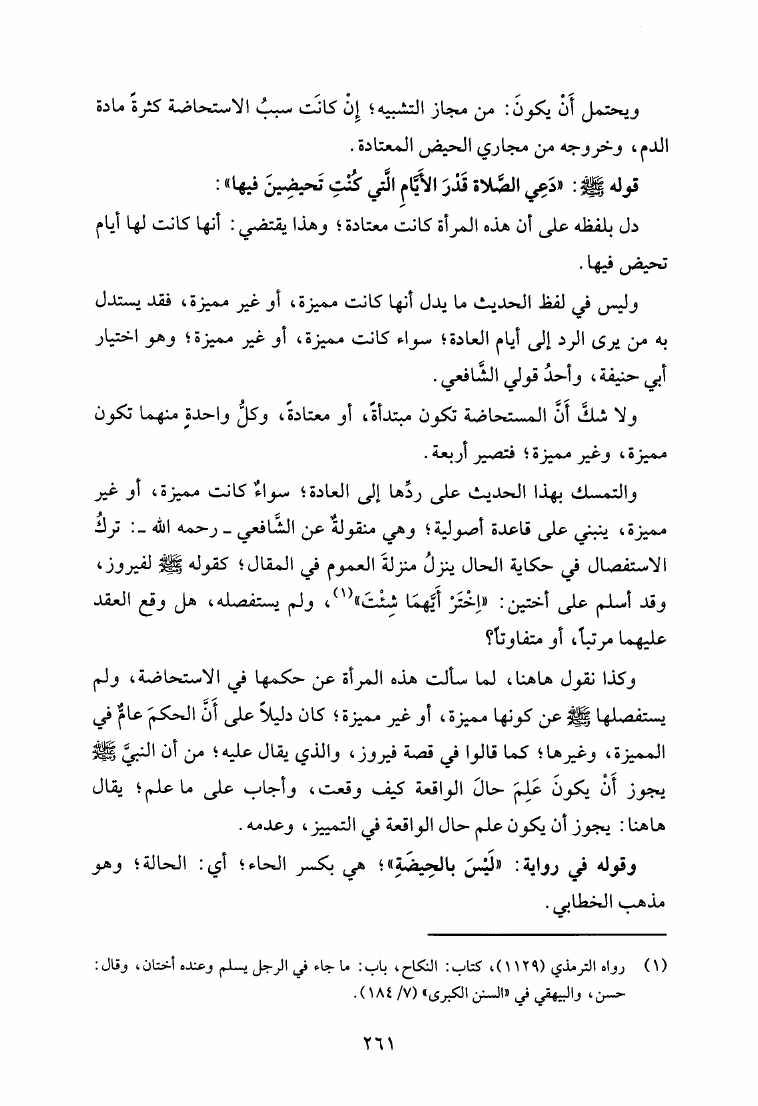 ويحتمل أَنْ يكونَ: من مجاز التشبيه؛ إِنْ كانَت سببُ الاستحاضة كثرةَ مادة
الدم، وخروجه من مجاري الحيض المعتادة.
قوله ﷺ: «دَعِي الصَّلاة قَدْرَ الأَيَّامِ الَّتي كُنْتِ تَحيضِينَ فيها»:
دل بلفظه على أن هذه المرأة كانت معتادة؛ وهذا يقتضي: أنها كانت لها أيام
تحيض فيها.
وليس في لفظ الحديث ما يدل أنها كانت مميزة، أو غير مميزة، فقد يستدل
به من يرى الرد إلى أيام العادة؛ سواء كانت مميزة، أو غير مميزة؛ وهو اختيار
أبي حنيفة، وأحدُ قولي الشَّافعي.
ولا شكَّ أَنَّ المستحاضة تكون مبتدأةً، أو معتادةً، وكلُّ واحدةٍ منهما تكون
مميزة، وغير مميزة؛ فتصير أربعة.
والتمسك بهذا الحديث على ردِّها إلى العادة؛ سواءٌ كانت مميزة، أو غير
مميزة، ينبني على قاعدة أصولية؛ وهي منقولةٌ عن الشَّافعي ـ رحمه الله ـ: تركُ
الاستفصال في حكاية الحال ينزلُ منزلةَ العموم في المقال؛ كقوله ﷺ لفيروز،
وقد أسلم على أختين: «اِخْتَرْ أَيَّهمَا شِئْتَ»(١)، ولم يستفصله، هل وقع العقد
عليهما مرتباً، أو متفاوتاً؟
وكذا نقول هاهنا، لما سألت هذه المرأة عن حكمها في الاستحاضة، ولم
يستفصلها ﷺ عن كونها مميزة، أو غير مميزة؛ كان دليلاً على أَنَّ الحكمَ عامٌّ في
المميزة، وغيرها؛ كما قالوا في قصة فيروز، والذي يقال عليه؛ من أن النبيَّ ﷺ
يجوز أَنْ يكونَ عَلِمَ حالَ الواقعة كيف وقعت، وأجاب على ما علم؛ يقال
هاهنا: يجوز أن يكون علم حال الواقعة في التمييز، وعدمه.
وقوله في رواية: «لَيْسَ بالحِيضَةِ»؛ هي بكسر الحاء؛ أي: الحالة؛ وهو
مذهب الخطابي.
(١) رواه الترمذي (١١٢٩)، كتاب: النكاح، باب: ما جاء في الرجل يسلم وعنده أختان، وقال:
حسن، والبيهقي في «السنن الكبرى» (٧/ ١٨٤).
٢٦١